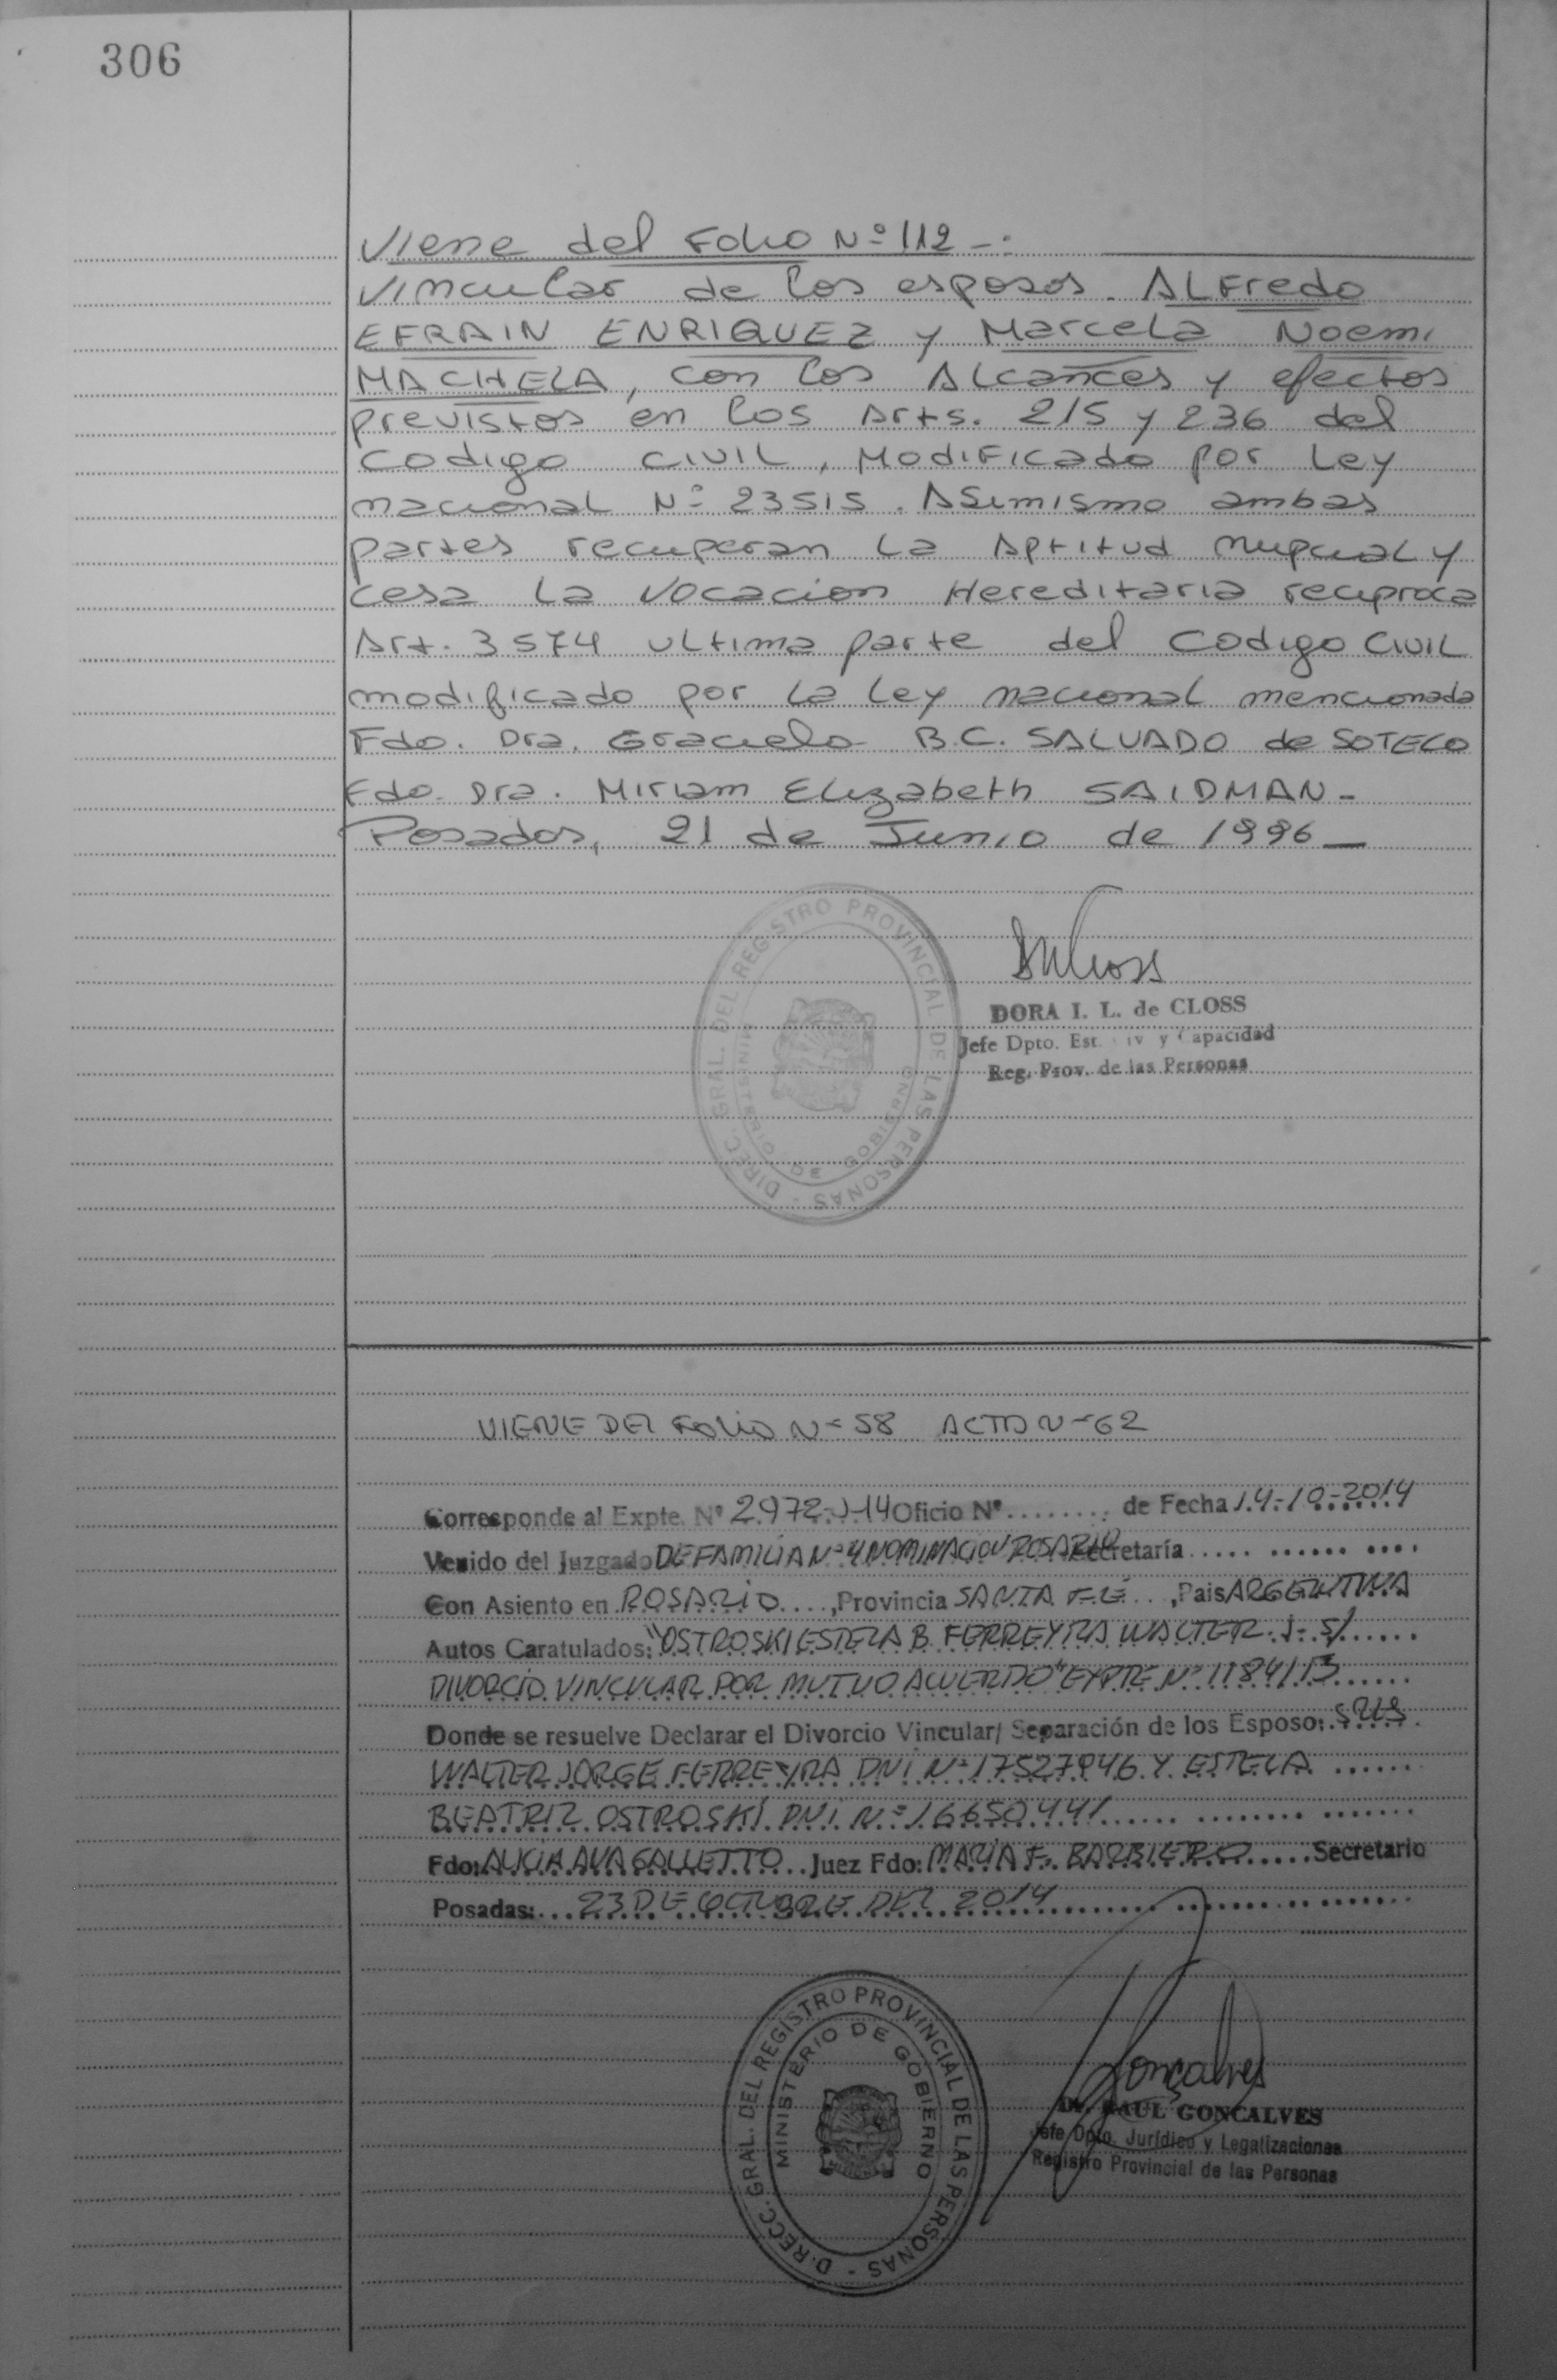 306
Viene del Folio Nº 112 -:
Vincular de los esposos. ALFredo
EFRAIN ENRIQUEZ y Marcela Noemi
MACHELA, con los Alcances y efectos
previstos en los Arts. 215 y 236 del
Codigo CIVIL, Modificado por Ley
nacional Nº 23515. Asimismo ambas
partes recuperan la Aptitud nupcial y
cesa la vocacion Hereditaria reciproca
Art. 3574 ultima parte del Codigo CIVIL
modificado por la Ley nacional mencionada
Fdo. Dra. Graciela B.C. SALVADO de SOTELO
Fdo. Dra. Miriam Elizabeth SAIDMAN-
Posadas, 21 de Junio de 1996-
DIREC. GRAL. DEL REGISTRO PROVINCIAL DE LAS PERSONAS -
MINISTERIO DE GOBIERNO
DORA I. L. de CLOSS
Jefe Dpto. Est. iv y Capacidad
Reg. Prov. de las Personas
VIENE DEL FOLIO Nº 58 ACTA Nº 62
Corresponde al Expte. Nº 2972-J-14 Oficio Nº ........ de Fecha 14-10-2014
Venido del Juzgado DE FAMILIA Nº 4 NOMINACION ROSARIO Secretaría ..... ...... ....
Con Asiento en ROSARIO ...., Provincia SANTA FE ..., Pais ARGENTINA
Autos Caratulados: "OSTROSKI ESTELA B. FERREYRA WALTER J- S/ ......
DIVORCIO VINCULAR POR MUTUO ACUERDO" EXPTE Nº 1184/13 ......
Donde se resuelve Declarar el Divorcio Vincular/ Separación de los Esposo: SRES
WALTER JORGE FERREYRA DNI Nº 17527946 Y ESTELA ......
BEATRIZ OSTROSKI DNI Nº 16650441 ...... ........ .......
Fdo: ALICIA ANA GALLETTO ... Juez Fdo: MARIA F. BARBIERO ..... Secretario
Posadas: ... 23 DE OCTUBRE DEL 2014 .......
DIRECC. GRAL. DEL REGISTRO PROVINCIAL DE LAS PERSONAS -
MINISTERIO DE GOBIERNO
Goncalves
Dr. RAUL GONCALVES
Jefe Dpto. Jurídico y Legalizaciones
Registro Provincial de las Personas